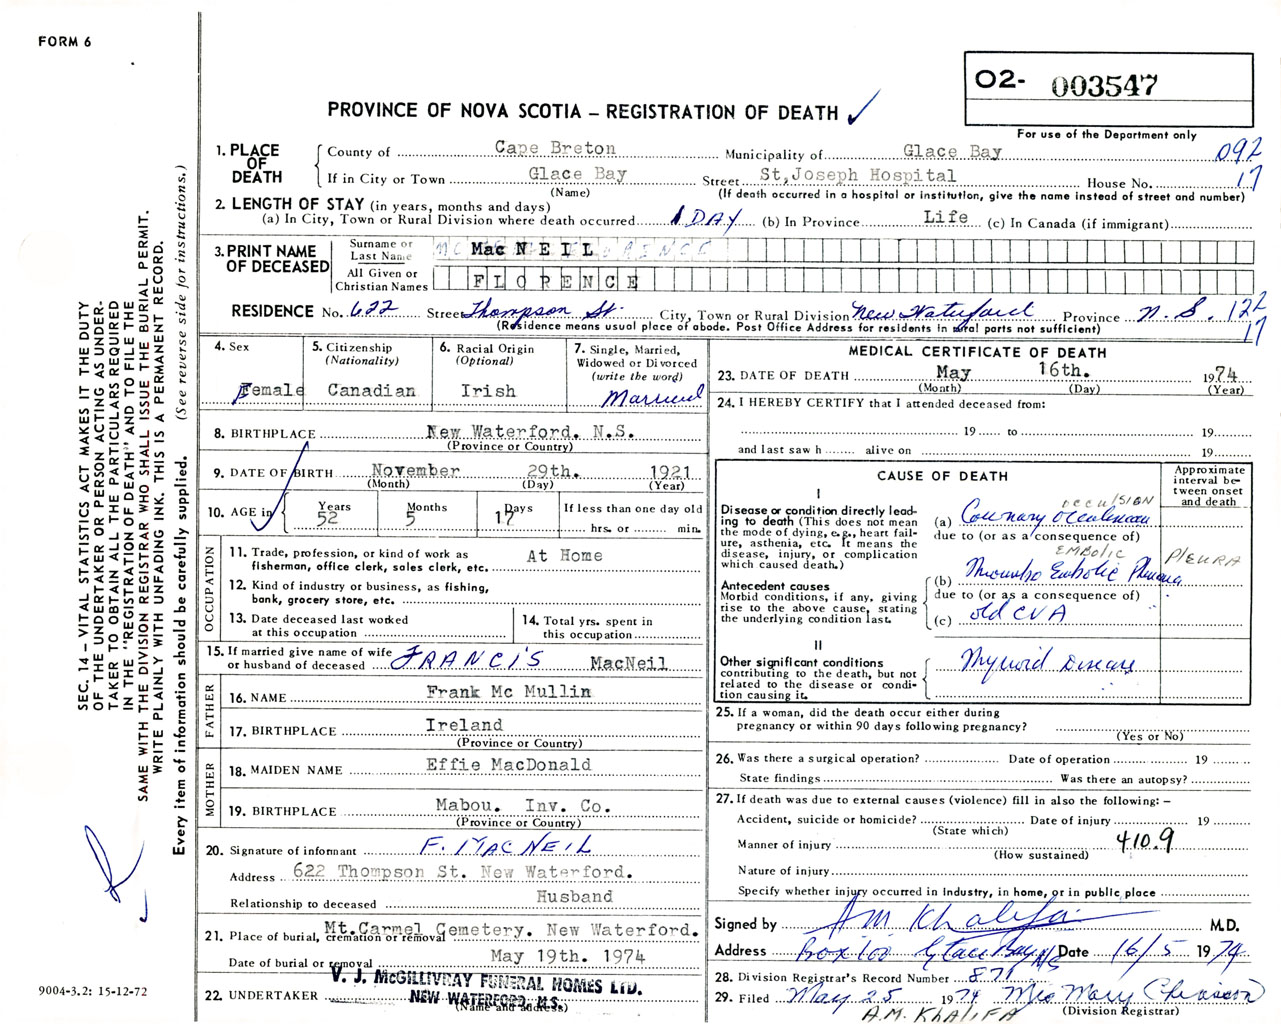 FORM 6
O2- 003547
For use of the Department only
PROVINCE OF NOVA SCOTIA – REGISTRATION OF DEATH
1. PLACE OF DEATH
County of Cape Breton Municipality of Glace Bay 092
If in City or Town Glace Bay Street St, Joseph Hospital House No. 17
(Name) (If death occurred in a hospital or institution, give the name instead of street and number)
2. LENGTH OF STAY (in years, months and days)
(a) In City, Town or Rural Division where death occurred 1 DAY (b) In Province Life (c) In Canada (if immigrant)
3. PRINT NAME OF DECEASED
Surname or Last Name MacNEIL
All Given or Christian Names FLORENCE
RESIDENCE No. 622 Street Thompson St. City, Town or Rural Division New Waterford Province N.S. 122
(Residence means usual place of abode. Post Office Address for residents in rural parts not sufficient) 17
4. Sex Female
5. Citizenship (Nationality) Canadian
6. Racial Origin (Optional) Irish
7. Single, Married, Widowed or Divorced (write the word) Married
8. BIRTHPLACE New Waterford. N.S.
(Province or Country)
9. DATE OF BIRTH November 29th. 1921
(Month) (Day) (Year)
10. AGE in Years 52 Months 5 Days 17 If less than one day old
hrs. or min.
OCCUPATION
11. Trade, profession, or kind of work as At Home
fisherman, office clerk, sales clerk, etc.
12. Kind of industry or business, as fishing,
bank, grocery store, etc.
13. Date deceased last worked
at this occupation
14. Total yrs. spent in
this occupation
15. If married give name of wife
or husband of deceased FRANCIS MacNeil
FATHER
16. NAME Frank Mc Mullin
17. BIRTHPLACE Ireland
(Province or Country)
MOTHER
18. MAIDEN NAME Effie MacDonald
19. BIRTHPLACE Mabou. Inv. Co.
(Province or Country)
20. Signature of informant F. MACNEIL
Address 622 Thompson St. New Waterford.
Relationship to deceased Husband
21. Place of burial, cremation or removal Mt. Carmel Cemetery. New Waterford.
Date of burial or removal May 19th. 1974
22. UNDERTAKER V. J. McGILLIVRAY FUNERAL HOMES LTD.
NEW WATERFORD, N.S.
(Name and address)
MEDICAL CERTIFICATE OF DEATH
23. DATE OF DEATH May 16th. 1974
(Month) (Day) (Year)
24. I HEREBY CERTIFY that I attended deceased from:
19 to 19
and last saw h alive on 19
CAUSE OF DEATH
Approximate interval between onset and death
I
Disease or condition directly leading to death (This does not mean the mode of dying, e.g., heart failure, asthenia, etc. It means the disease, injury, or complication which caused death.)
OCCUISIGN
(a) Coronary Occlusion
due to (or as a consequence of)
EMBOLIC PlEURA
(b) Thrombo Embolic Pleura
due to (or as a consequence of)
(c) old CVA
Antecedent causes
Morbid conditions, if any, giving rise to the above cause, stating the underlying condition last.
II
Other significant conditions contributing to the death, but not related to the disease or condition causing it.
Thyroid Disease
25. If a woman, did the death occur either during
pregnancy or within 90 days following pregnancy?
(Yes or No)
26. Was there a surgical operation? Date of operation 19
State findings Was there an autopsy?
27. If death was due to external causes (violence) fill in also the following: –
Accident, suicide or homicide? Date of injury 19
(State which)
Manner of injury 410.9
(How sustained)
Nature of injury
Specify whether injury occurred in Industry, in home, or in public place
Signed by A M Khalifa M.D.
Address Box 100 Glace Bay NS Date 16/5 1974
28. Division Registrar's Record Number 871
29. Filed May 25 1974 Mrs Mary Chiasson
(Division Registrar)
A.M. KhALIFA
SEC. 14 – VITAL STATISTICS ACT MAKES IT THE DUTY
OF THE UNDERTAKER OR PERSON ACTING AS UNDER-
TAKER TO OBTAIN ALL THE PARTICULARS REQUIRED
IN THE "REGISTRATION OF DEATH" AND TO FILE THE
SAME WITH THE DIVISION REGISTRAR WHO SHALL ISSUE THE BURIAL PERMIT.
WRITE PLAINLY WITH UNFADING INK. THIS IS A PERMANENT RECORD.
Every item of information should be carefully supplied. (See reverse side for instructions.)
9004-3.2: 15-12-72